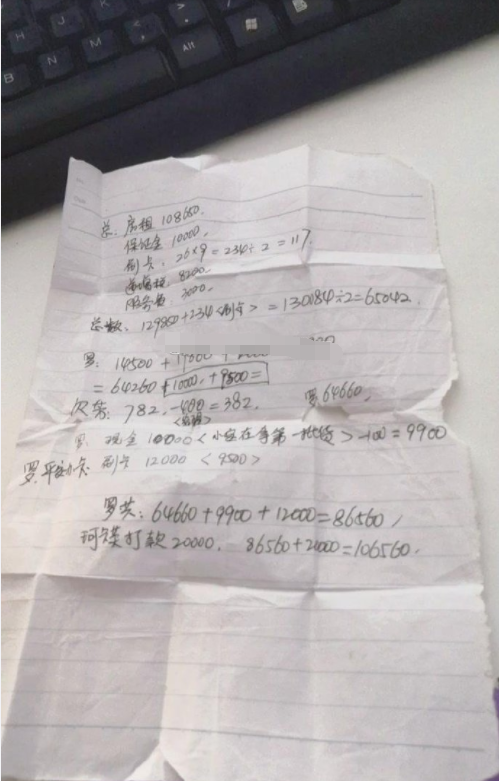 N
M
H
J
K
L
B
Alt
总：房租 108650.
保证金 10000.
刷卡：26×9=234÷2=117.
8200.
服务费：3000.
总数：129850+234<刷卡>=130084÷2=65042.
罗：14500+
=64260+10000,+9500=
欠芸：782.-400=382.
罗64660,
现金10000<小应在拿第一批货>-100=9900
罗:平安小卡 刷卡 12000 <9500>
罗芸：64660+9900+12000=86560,
珂镁打款20000. 86560+20000=106560.